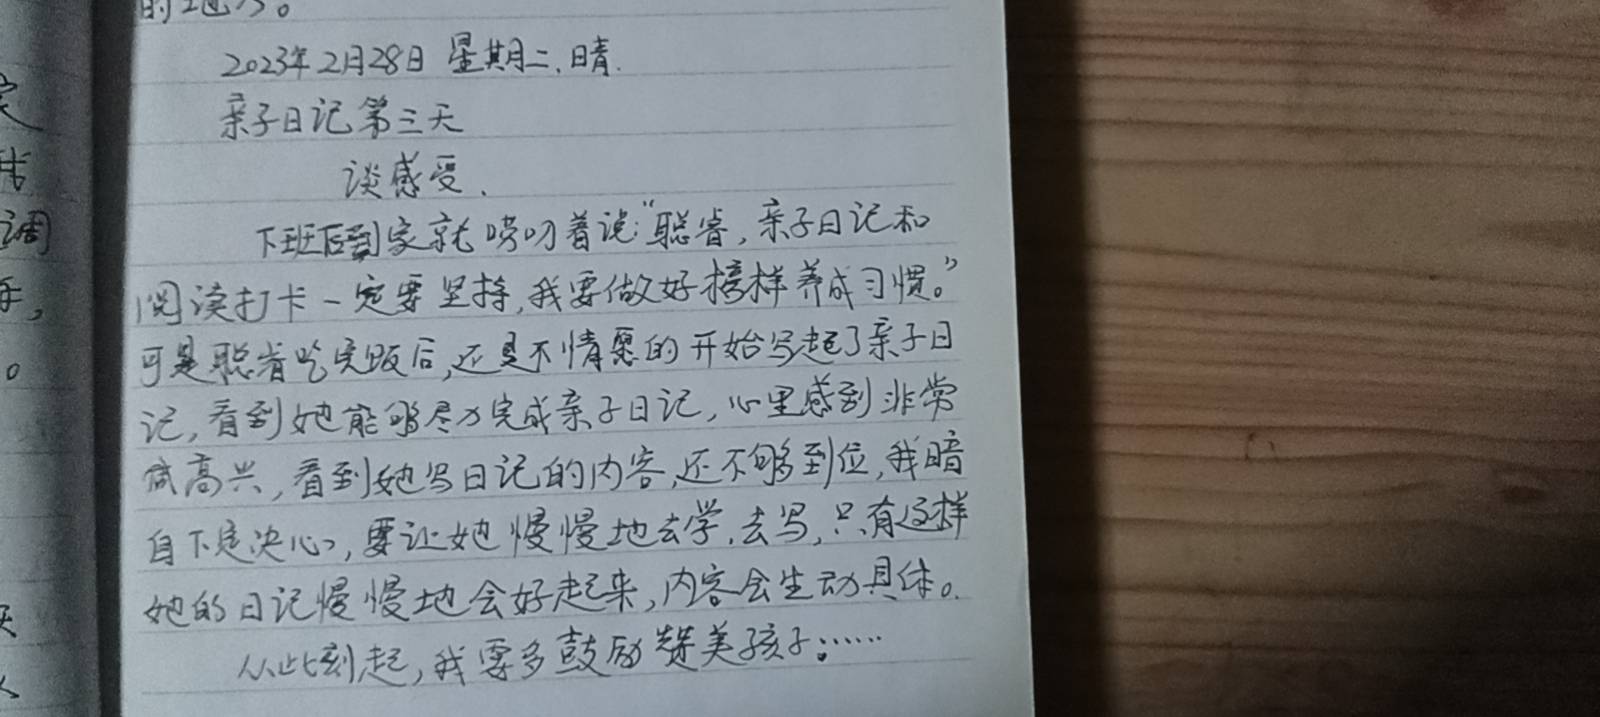 2023年2月28日 星期二.晴.
亲子日记第三天
谈感受.
下班后到家就唠叨着说:“聪睿,亲子日记和
阅读打卡一定要坚持,我要做好榜样养成习惯。”
可是聪睿吃完饭后,还是不情愿的开始写起了亲子日
记,看到她能够尽力完成亲子日记,心里感到非常
高兴,看到她写日记的内容,还不够到位,我暗
自下定决心,要让她慢慢地去学.去写,只有这样
她的日记慢慢地会好起来,内容会生动具体。
从此刻起,我要多鼓励赞美孩子:……
调